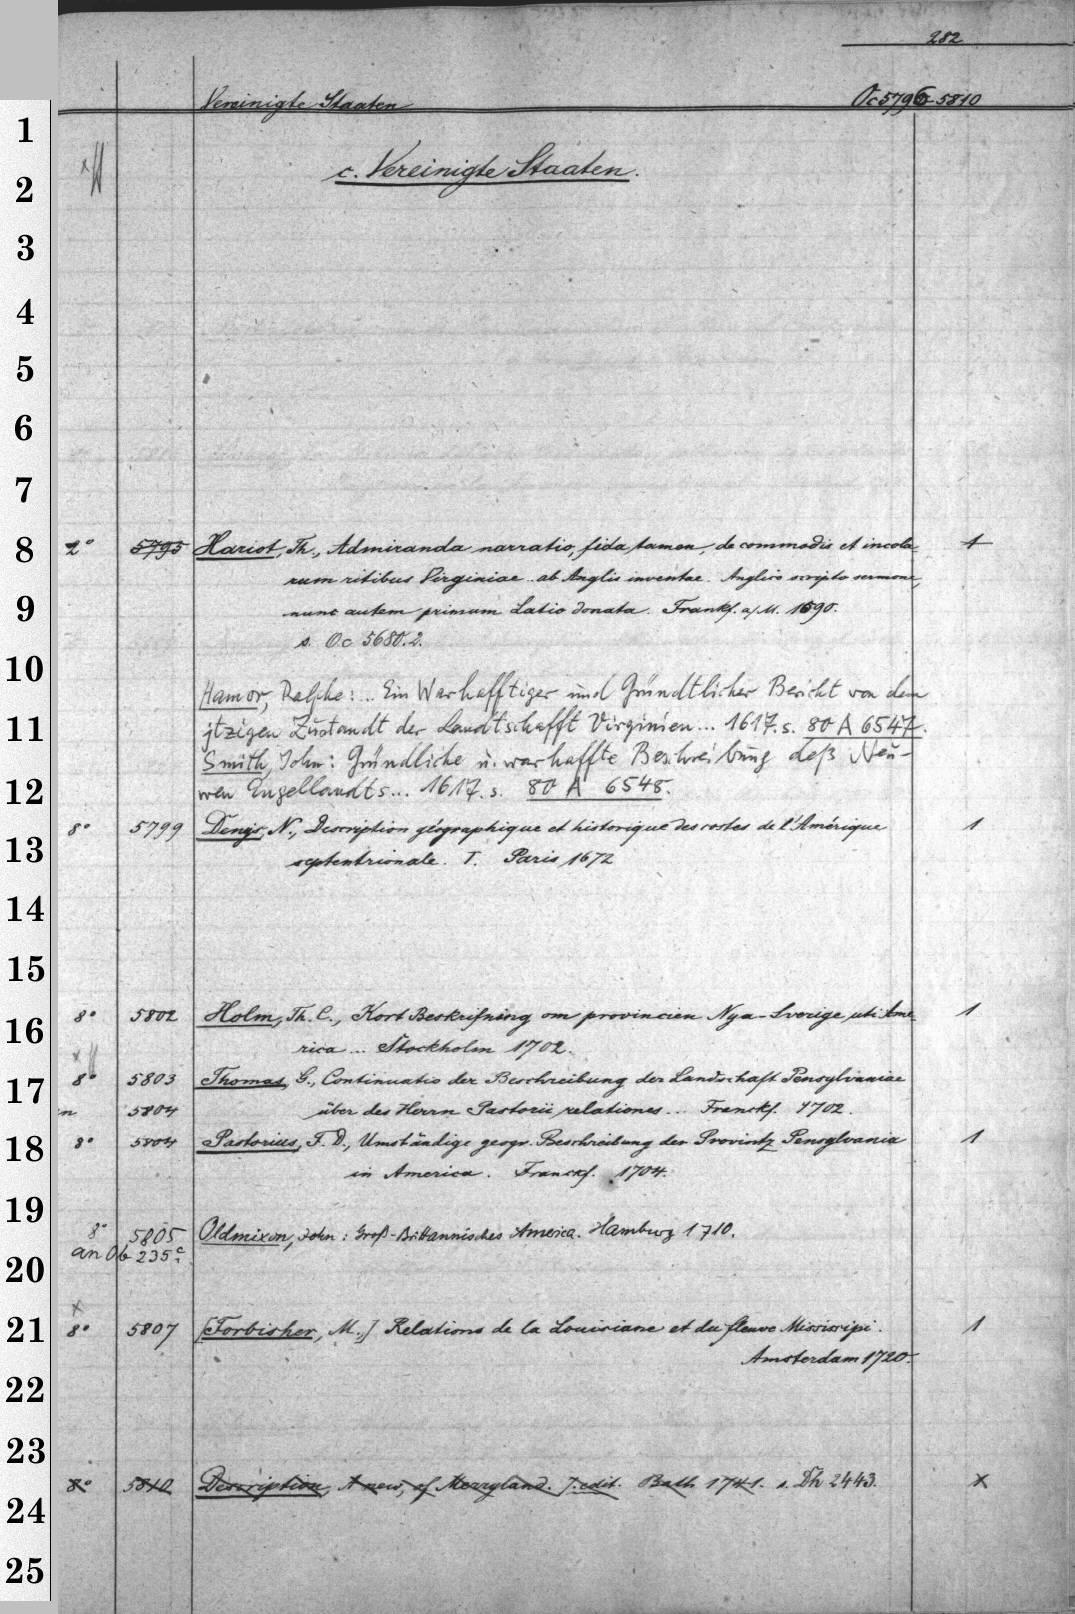 282
Vereinigte Staaten Oc5796-5810
1
c. Vereinigte Staaten.
2
3
4
5
6
7
8 2° 5795 Hariot, Th., Admiranda narratio, fida tamen, de commodis et incola- 1
rum ritibus Virginiae .. ab Anglis inventae. Anglico scripto sermone,
9 nunc autem primum Latio donata. Frankf. a/M. 1590.
s. Oc 5680.2.
10 Hamor, Ralphe: ... Ein Warhafftiger und Gründtlicher Bericht von dem
11 jtzigen Zustandt der Landtschafft Virginien... 1617. s. 80 A 6547.
Smith, John: Gründliche u. warhaffte Beschreibung deß Neu-
12 wen Engellandts... 1617. s. 80 A 6548.
8° 5799 Denijs, N., Description géographique et historique des costes de l'Amérique 1
13 septentrionale. T. Paris 1672
14
15
16 8° 5802 Holm, Th. C., Kort Beskrifning om provincien Nya-Sverige uti Ame- 1
rica ... Stockholm 1702.
17 8° 5803 Thomas, G., Continuatio der Beschreibung der Landschaft Pensylvaniae
an 5804 über des Herrn Pastorii relationes... Franckf. 1702.
18 8° 5804 Pastorius, F. D., Umständige geogr. Beschreibung der Provintz Pensylvania 1
in America. Franckf. 1704.
19 8° 5805 Oldmixon, John: Groß-Brittannisches America. Hamburg 1710.
an Ob 235
20
x
21 8° 5807 [Forbisher, M.,] Relations de la Louisiane et du fleuve Mississipi. 1
Amsterdam 1720.
22
23
8° 5810 Description, A new, of Merryland. 7. edit. Bath 1741. s. Dh 2443. x
24
25